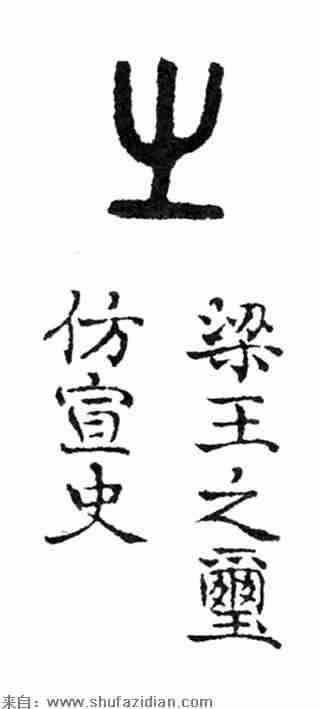 之
梁王之璽
仿宣史
来自：www.shufazidian.com